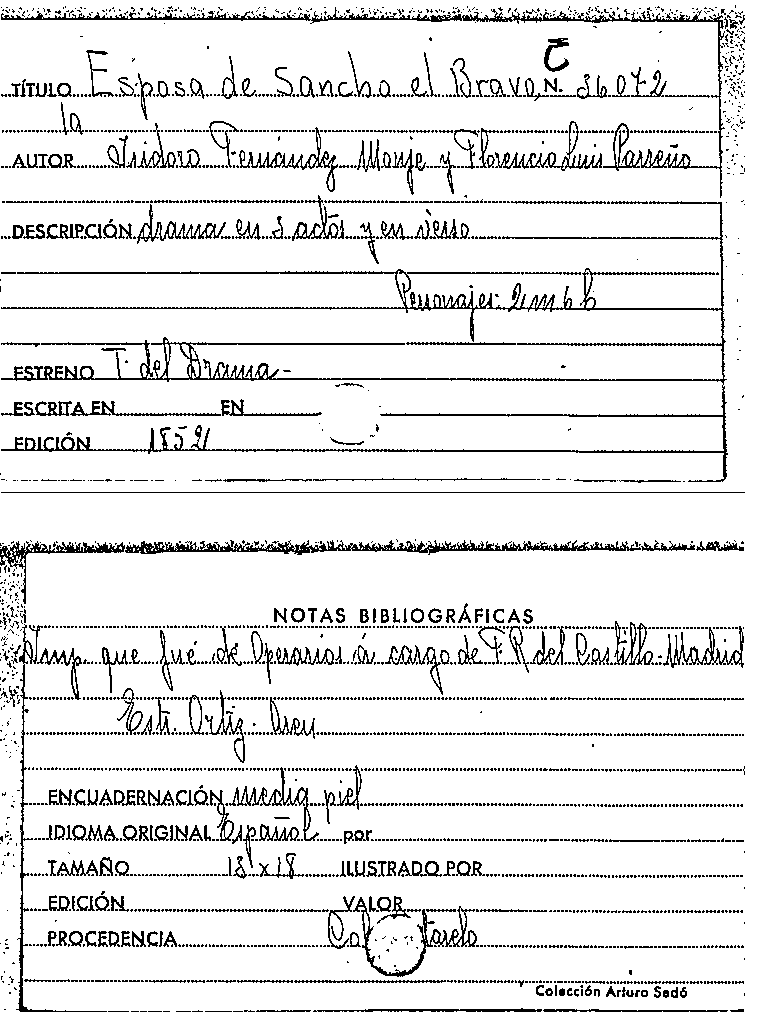 C
TÍTULO Esposa de Sancho el Bravo, N. 36072
la
AUTOR Isidoro Fernández Monje y Florencio Luis Parreño
DESCRIPCIÓN drama en 3 actos y en verso
Personajes: 2 m 6 h
ESTRENO T. del Drama-
ESCRITA EN EN
EDICIÓN 1852
NOTAS BIBLIOGRÁFICAS
Imp. que fué de Operarios á cargo de F. R. del Castillo-Madrid
Estr. Ortiz-
ENCUADERNACIÓN media piel
IDIOMA ORIGINAL Español por
TAMAÑO 18 x 18 ILUSTRADO POR
EDICIÓN VALOR
PROCEDENCIA
Colección Arturo Sedó